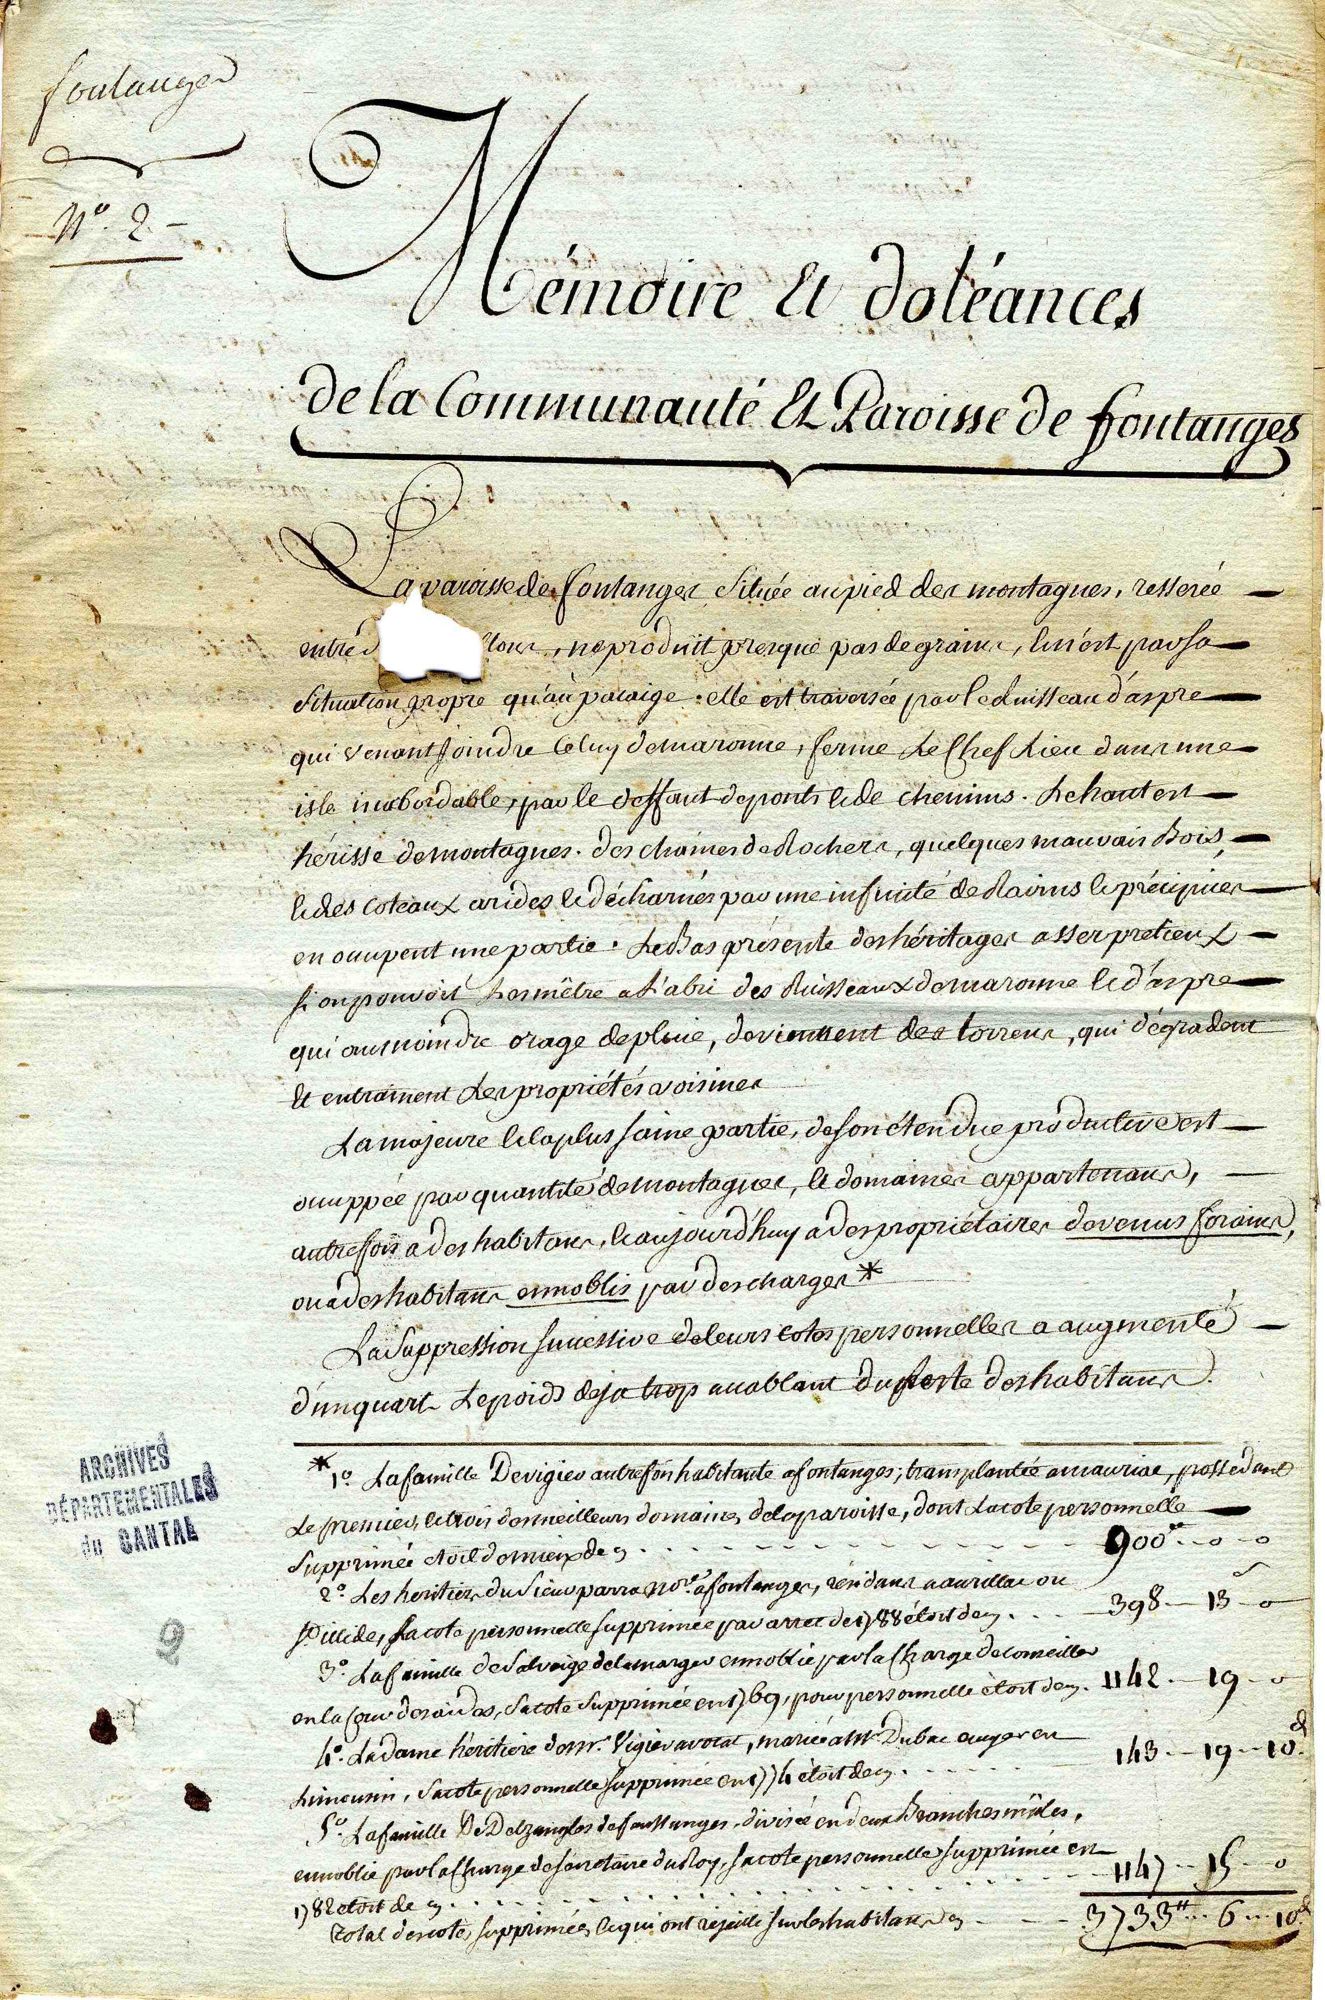 fontanges
N° 2 -
Mémoire Et doléances
de la Communauté Et Paroisse de fontanges
La paroisse de fontanges, située au pied des montagnes, resserée
entre, ne produit presque pas de grains, et n'est par sa
situation propre qu'au pacaige. elle est traversée par le Ruisseau d'aspre
qui venant joindre celuy de maronne, ferme Le Chef Lieu dans une
isle inabordable, par le deffaut de ponts et de chemins. Le haut est
hérissé de montagnes. des chaines de Rochers, quelques mauvais Bois,
et des coteaux arides et décharnés par une infinité de Ravins et précipices
en ocupent une partie. Le Bas présente des héritages assez pretieux
si on pouvoit Les mêtre a L'abri des Ruisseaux de maronne et d'aspre
qui au moindre orage de pluie, deviennent des torrens, qui dégradent
Et entrainent Les propriétés voisines
La majeure et la plus saine partie, de son étendue productive est
ocuppée par quantité de montagnes, et domaines appartenans,
autreffois a des habitans, et aujourd'huy a des propriétaires devenus forains,
ou a des habitans ennoblis par des charges *
La suppression successive de leurs cotes personnelles a augmenté
d'un quart Le poids deja trop acablant du Reste des habitans.
* 1° La famille De vigier autrefois habitante a fontanges; transplantée a mauriac, possedant
Le premier, et trois des meilleurs domaines de la paroisse, dont La cote personnelle
supprimée étoit de 900# - 0 - 0
2° Les heritiers du Sieur parra no.re a fontanges, résidans a aurillac ou
St illide, La cote personnelle supprimée par arret de 1788 étoit de 398 - 13 - 0
3° La famille de Salvaige de lamargé ennoblie par la Charge de Conseiller
en la Cour des aides, Sa cote supprimée en 1769, pour personnelle étoit de 1142 - 19 - 0
4° La dame héritiere de mr. Vigier avocat, mariée a Mr Dubac en
Limousin, Sa cote personnelle supprimée en 1774 étoit de 143 - 19 - 10d
5° La famille De Delzangles de faussanges, divisée en deux Branches mâles,
ennoblie par la Charge de Secretaire du Roy, Sa cote personnelle supprimée en
1782 étoit de 1147 - 15 - 0
Total des cotes supprimées, et qui ont rejailli sur les habitans 3733# - 6 - 10d
ARCHIVES
DÉPARTEMENTALES
du CANTAL
2